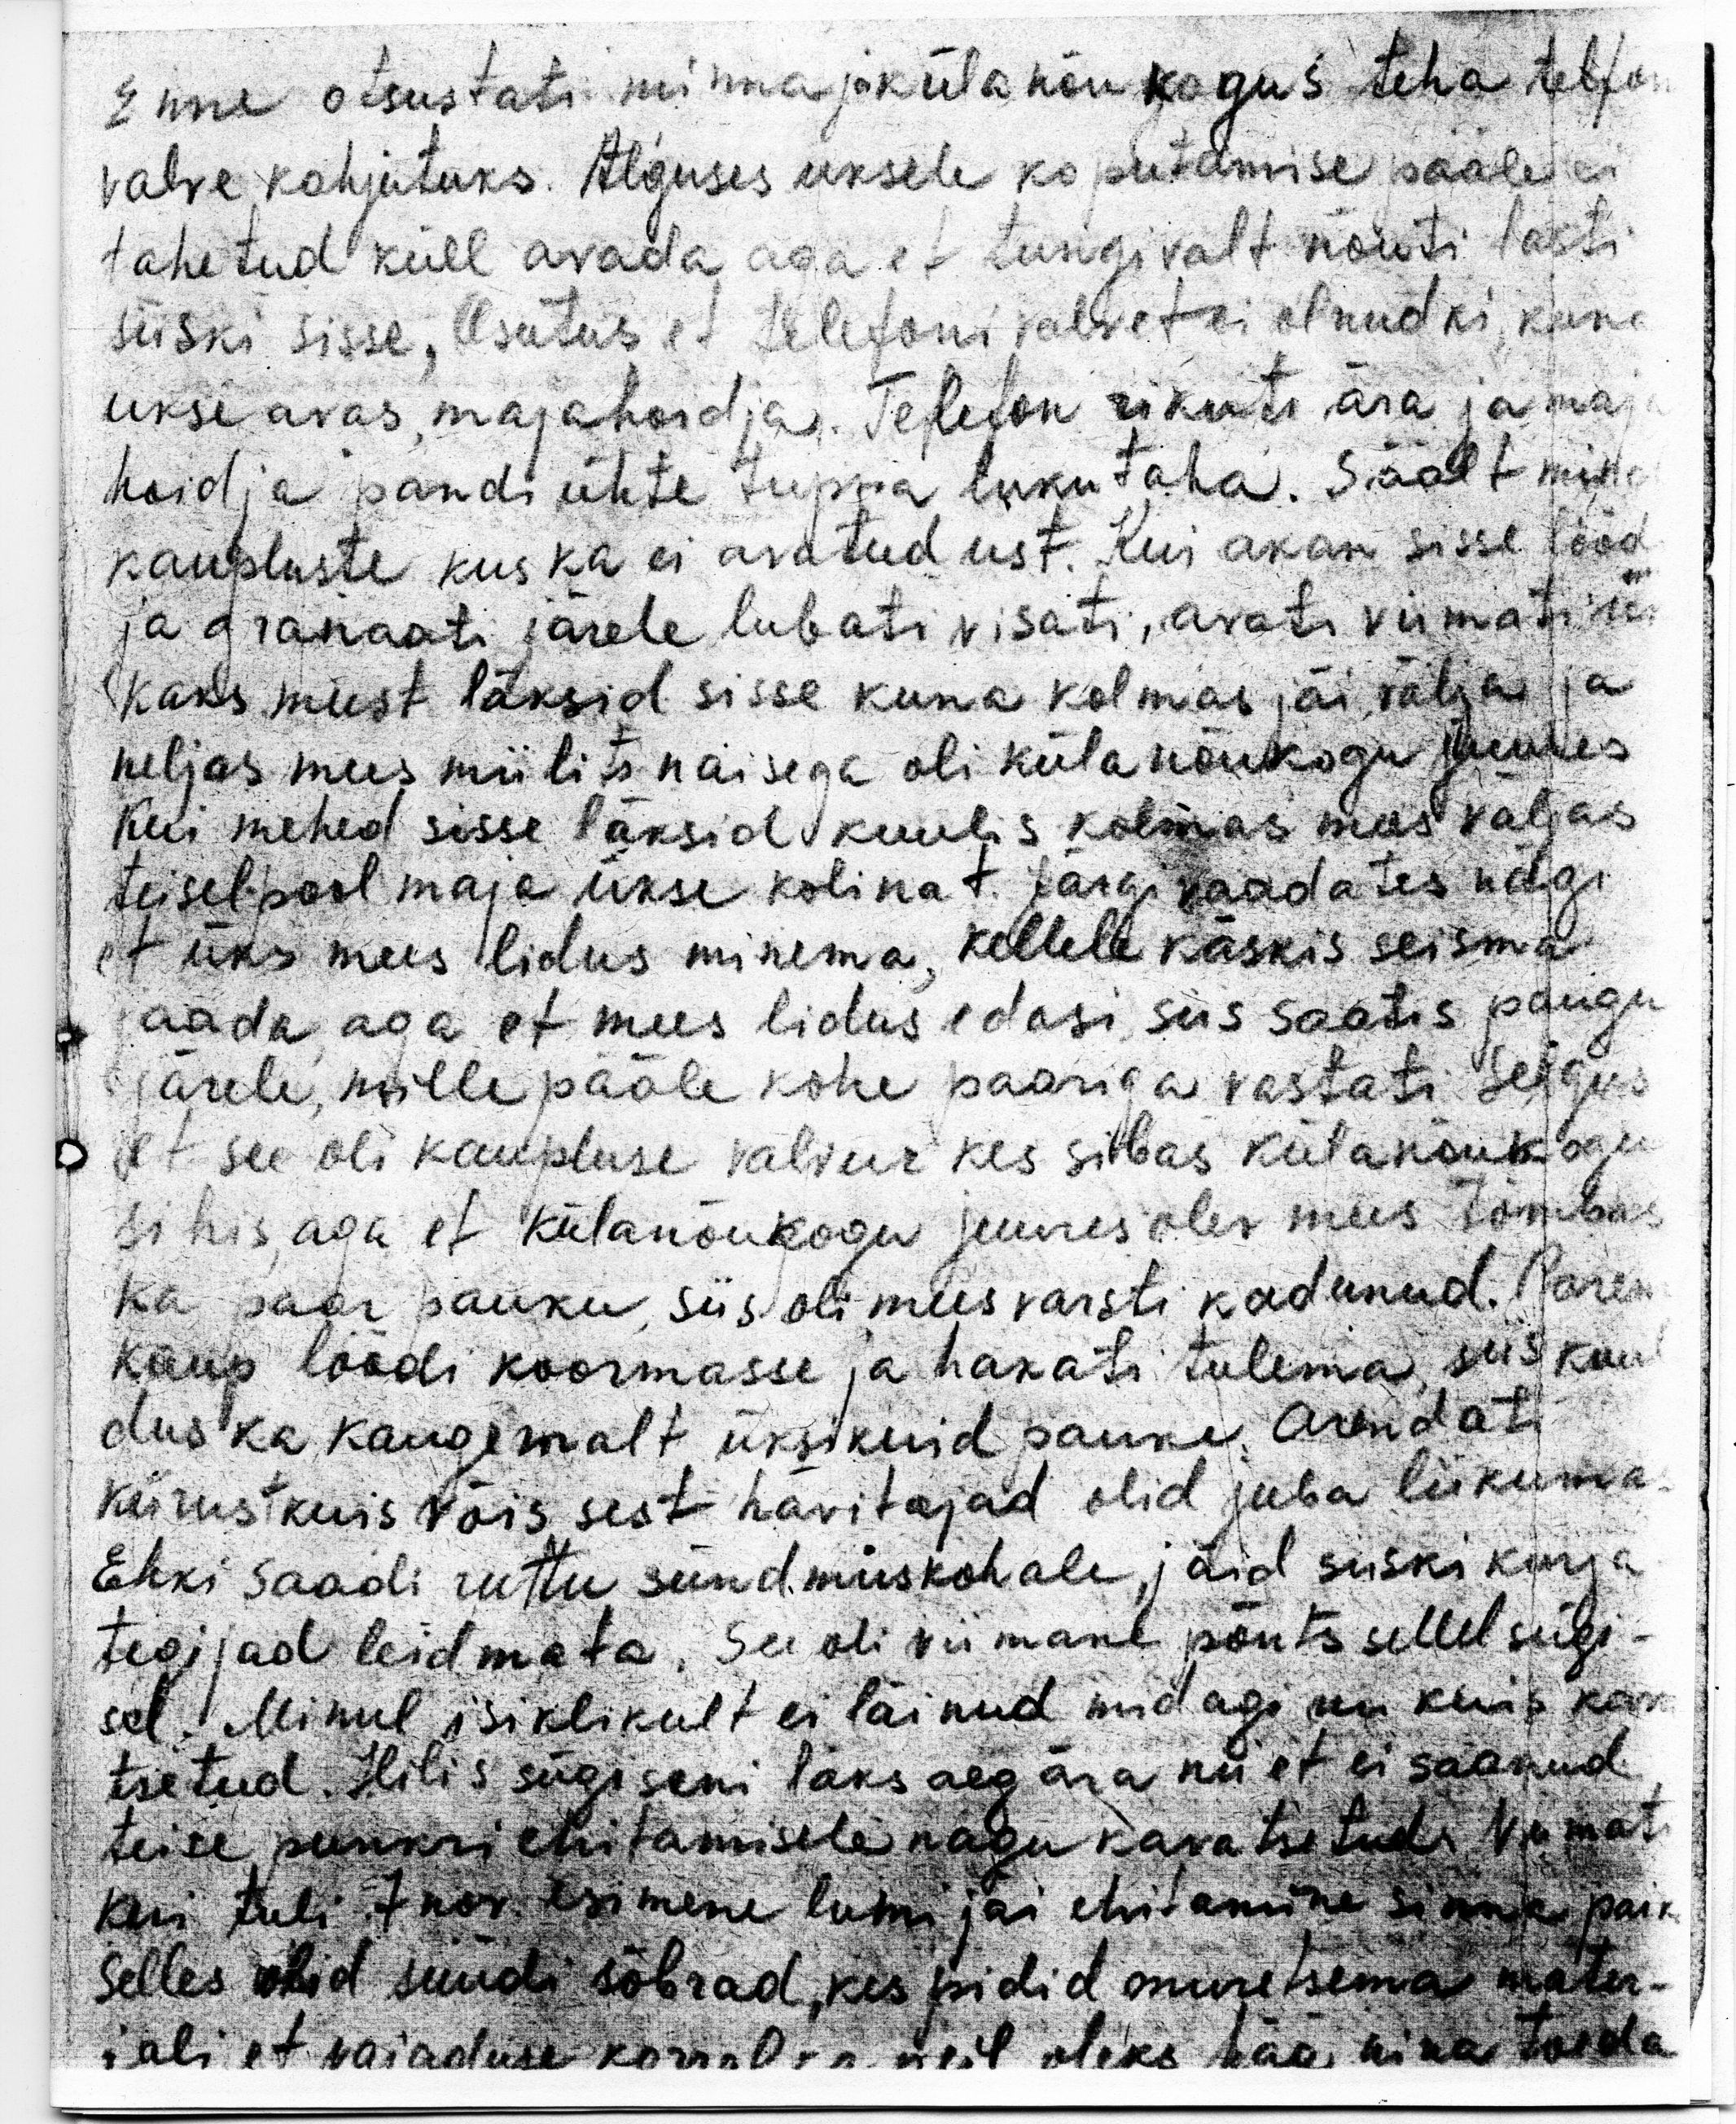 Enne otsustati minna ja külanõukogus teha telfon
valve kahjutuks. Alguses uksele koputamise pääle ei
tahetud küll avada aga et tungivalt nõuti lasti
siiski sisse, Osutus et telefoni valvet ei olnudki, kuna
ukse avas majahoidja. Telefon rikuti ära ja maja
hoidja pandi ühte tuppa luku taha. Säält mindi
kaupluste kus ka ei avatud ust. Kui akan sisse lööd
ja granaati järele lubati visati, avati viimati
Kaks meest läksid sisse kuna kolmas jäi välja ja
neljas mees miilits naisega oli külanõukogu juures
Kui mehed sisse läksid kuulis kolmas mees väljas
teiselpool maja ükse kolinat. Järgi vaadates nägi
et üks mees lidus minema, kellele käskis seisma
jääda, aga et mees lidus edasi, siis saatis paugu
järele, mille pääle kohe paariga vastati. Selgus
et see oli kaupluse valvur kes silbas külanõukogu
sihis, aga et külanõukogu juures olev mees tõmbas
ka paar pauku, siis oli mees varsti kadunud. Parem
kaup löödi koormasse ja hakati tulema, siis kuul
dus ka kaugemalt üksikuid pauke. Arendati
kiirust kuis võis sest hävitajad olid juba liikumas.
Ehki saadi ruttu sündmuskohale, jäid siiski kurja
tegijad leidmata. See oli viimane põnts sellel sügi-
sel. Minul isiklikult ei läinud midagi nii kuis kava
tsetud. Hilissügiseni läks aeg ära nii et ei saanud
teise punkri ehitamisele nagu kavatsetud. Viimati
kui tuli 7 nov. esimene lumi jäi ehitamine sinna paik
Selles olid süüdi sõbrad, kes pidid muretsema mater-
jali et vajaduse korral ka neil oleks hää nina toeda